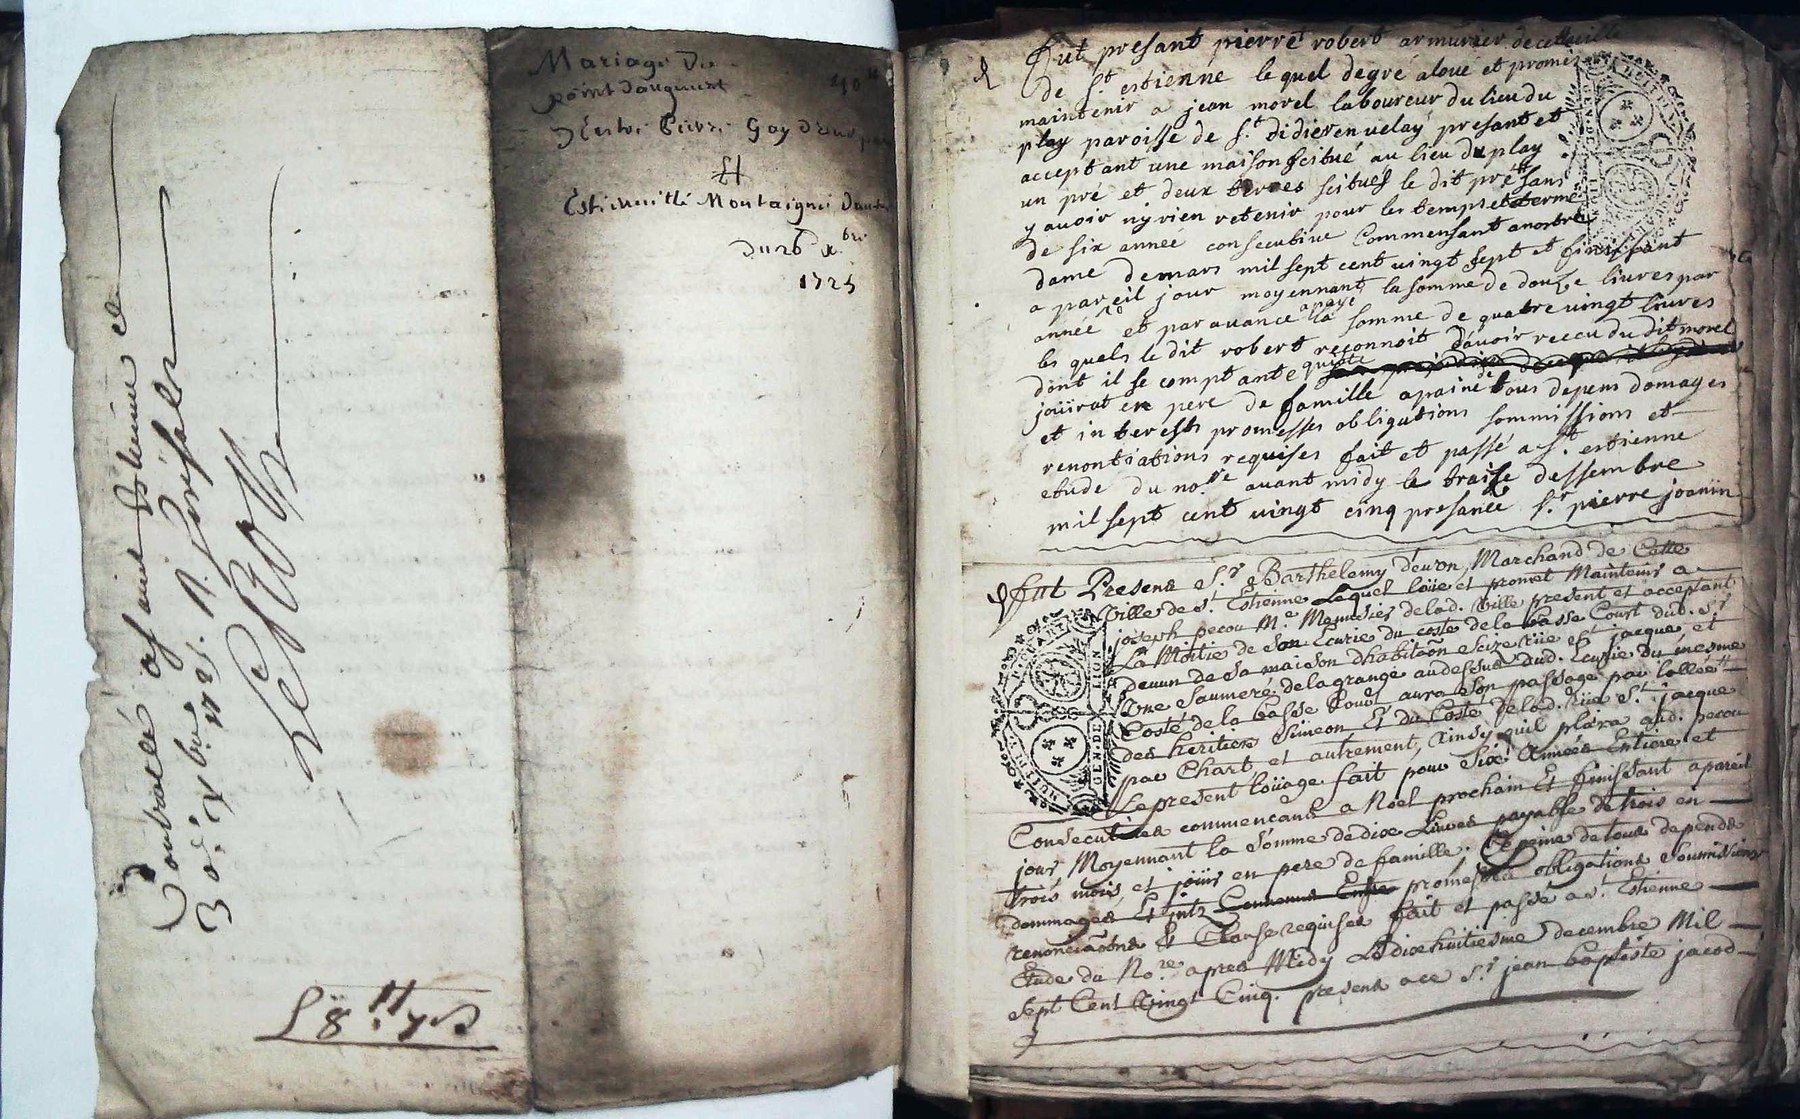 Controllé assaint Estienne le
30e Xbre 1725. R.
Mariage De
point daugment
Pierre Gay
Et
Montaigne
Du 26 Xbre
1725
fut presant pierre robert armurier de cette ville
de St estienne lequel degré aloué et promes
maintenir a jean morel laboureur du lieu du
play paroisse de St didier en velay presant et
acceptant une maison scitué au lieu du play
un pré et deux terres scitues le dit pré sans
y avoir ny rien retenir pour les temps et terme
de six année consecutive Commensant a nostre
dame de mars mil sept cent vingt sept et finissant
a pareil jour moyennant la somme de douze livres par
année et par avance a payé la somme de quatre vingt livres
les quels le dit robert reconnoit davoir receu du dit morel
dont il se comptante quitte
joüirat en pere de famille a paine de tous depens domages
et interests promesses obligations sommissions et
renontiations requises fait et passé a St estienne
etude du nore avant midy le traise dessembre
mil sept cent vingt cinq presance Sr pierre joanin
fut Presens Sr Barthelemy devon Marchand de Cette
Ville de St Estienne Lequel loüe et promet Maintenir a
joseph pecou Me Menusier de lad. Ville present et acceptant
La Moitie de son Ecurie du costé de la basse Court dud. Sr
devon de sa maison dhabitaon Seize rüe St jacque et
Une de la grange au dessus dud. Ecurie du mesme
Costé de la basse Cour aura son passage par lallée
des heritiers Simeon Et du Costé de lad. rüe St jacque
par Chart et autrement, Ainsy quil plaira aud. pecou
Le present loüage fait pour Six Années Entiere et
Consecutives commencant a Noel prochain Et finissant a pareil
jour Moyennant la somme de dix Livres payable de trois en
trois mois et joüir en pere de famille. A peine de tous depends
dommages Et Intz promesses obligations Soumissions
renonciaons Et Clause requises fait et passé a St Estienne
Etude du Nore apres Midy Le dixhuitiesme decembre Mil
sept Cent Vingt Cinq. presens a ce Sr jean baptiste jacod